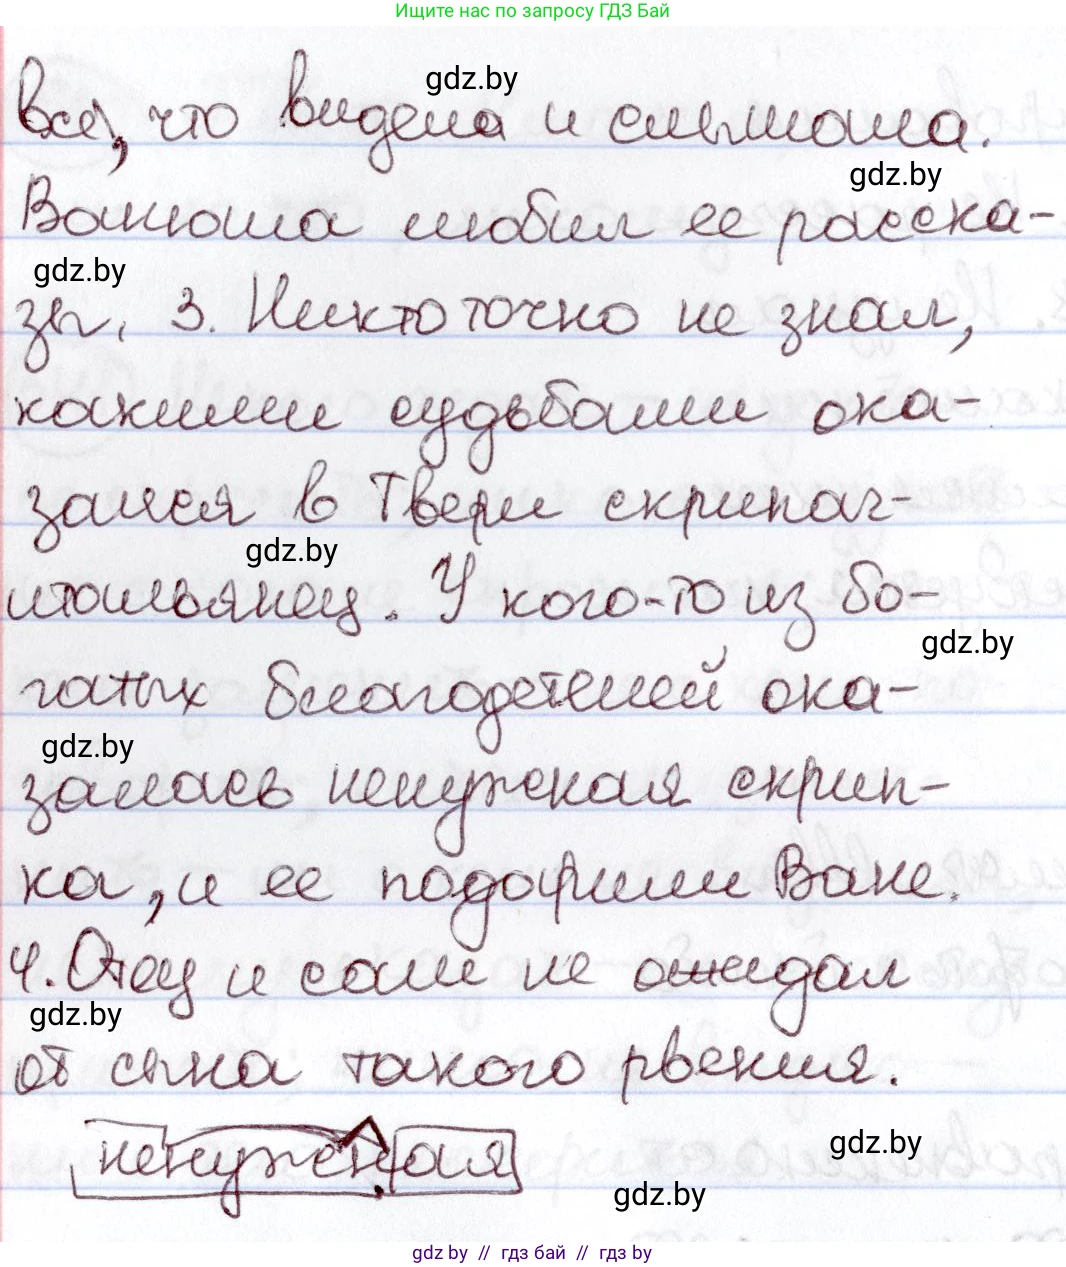 Ищите нас по запросу ГДЗ Бай
gdz.by
все, что видела и слышала.
gdz.by
Ванюша любил ее расска-
gdz.by
зы. 3. Никто точно не знал,
какими судьбами ока-
зался в Твери скрипач-
gdz.by
итальянец. У кого-то из бо-
gdz.by
гатых благодетелей ока-
gdz.by
залась ненужная скрип-
ка, и ее подарили Ване.
4. Отец и сам не ожидал
gdz.by
от сына такого рвения.
ненуженая
gdz.by
gdz.by
gdz.by // гдз бай // гдз by